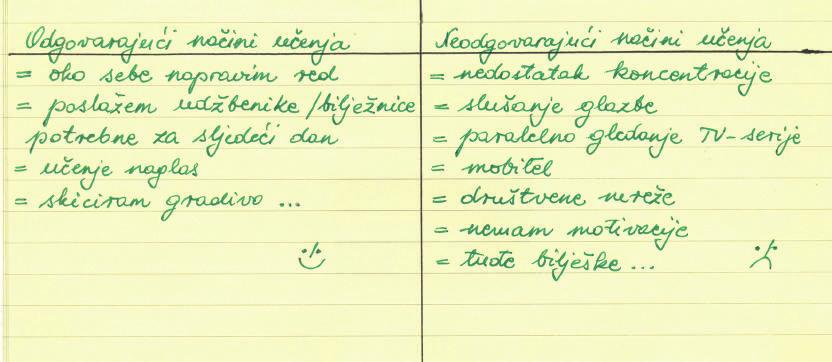 Odgovarajući načini učenja
= oko sebe napravim red
= poslažem udžbenike/bilježnice
potrebne za sljedeći dan
= učenje naglas
= skiciram gradivo ...
Neodgovarajući načini učenja
= nedostatak koncentracije
= slušanje glazbe
= paralelno gledanje TV-serije
= mobitel
= društvene mreže
= nemam motivacije
= tuđe bilješke ...